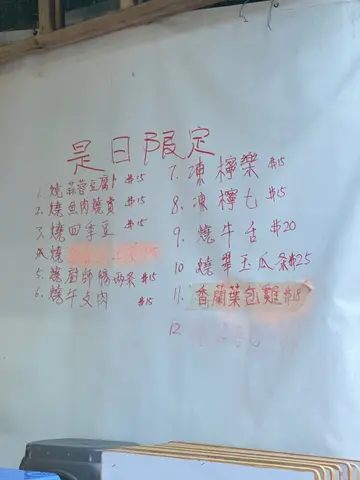 是日限定
1. 燒蒜蓉豆腐卜 $15
2. 燒魚肉燒賣 $15
3. 燒四季豆 $15
4. 燒
5. 燒廚師腸兩条 $15
6. 燒牛友肉 $15
7. 凍檸樂 $15
8. 凍檸七 $15
9. 燒牛舌 $20
10 燒翠玉瓜条 $25
11. 香蘭葉包雞 $18
12.